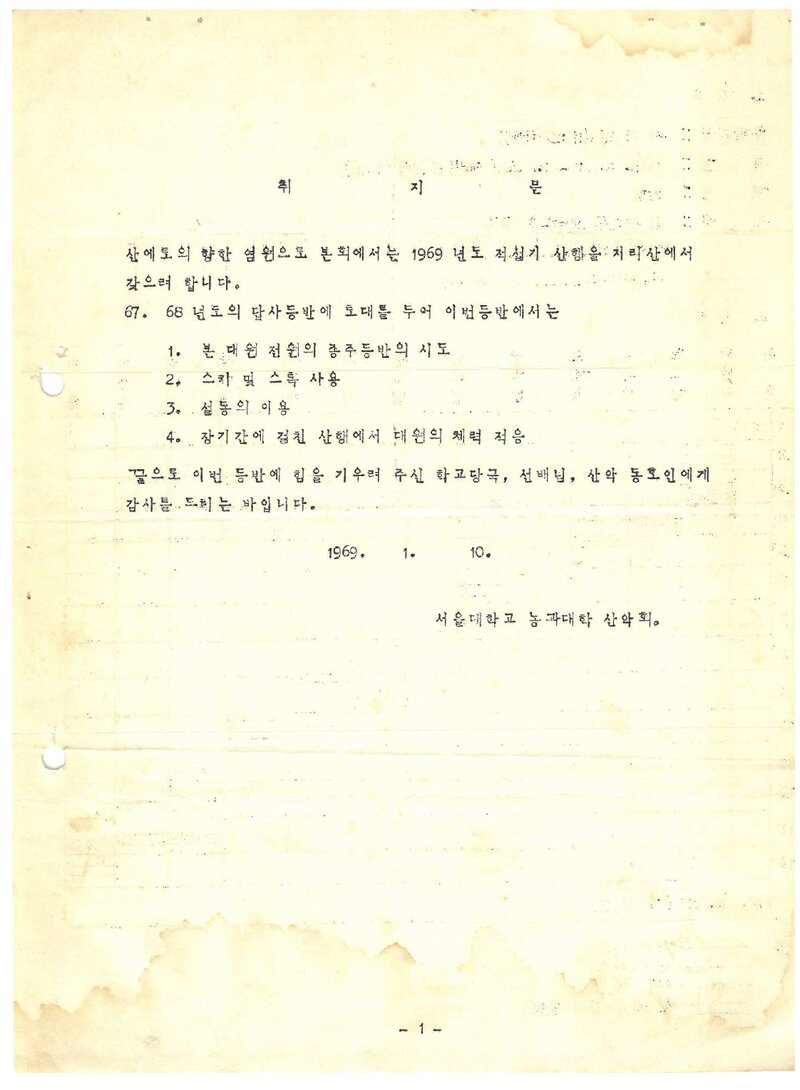 취 지 문
산에로의 향한 염원으로 본회에서는 1969 년도 적설기 산행을 지리산에서
갖으려 합니다。
67. 68 년도의 답사등반에 토대를 두어 이번등반에서는
1. 본 대원 전원의 종주등반의 시도
2. 스키 및 스톡 사용
3. 설동의 이용
4. 장기간에 걸친 산행에서 대원의 체력 적응
끝으로 이번 등반에 힘을 기우려 주신 학교당국, 선배님, 산악 동호인에게
감사를 드리는 바입니다.
1969. 1. 10.
서울대학교 농과대학 산악회。
- 1 -